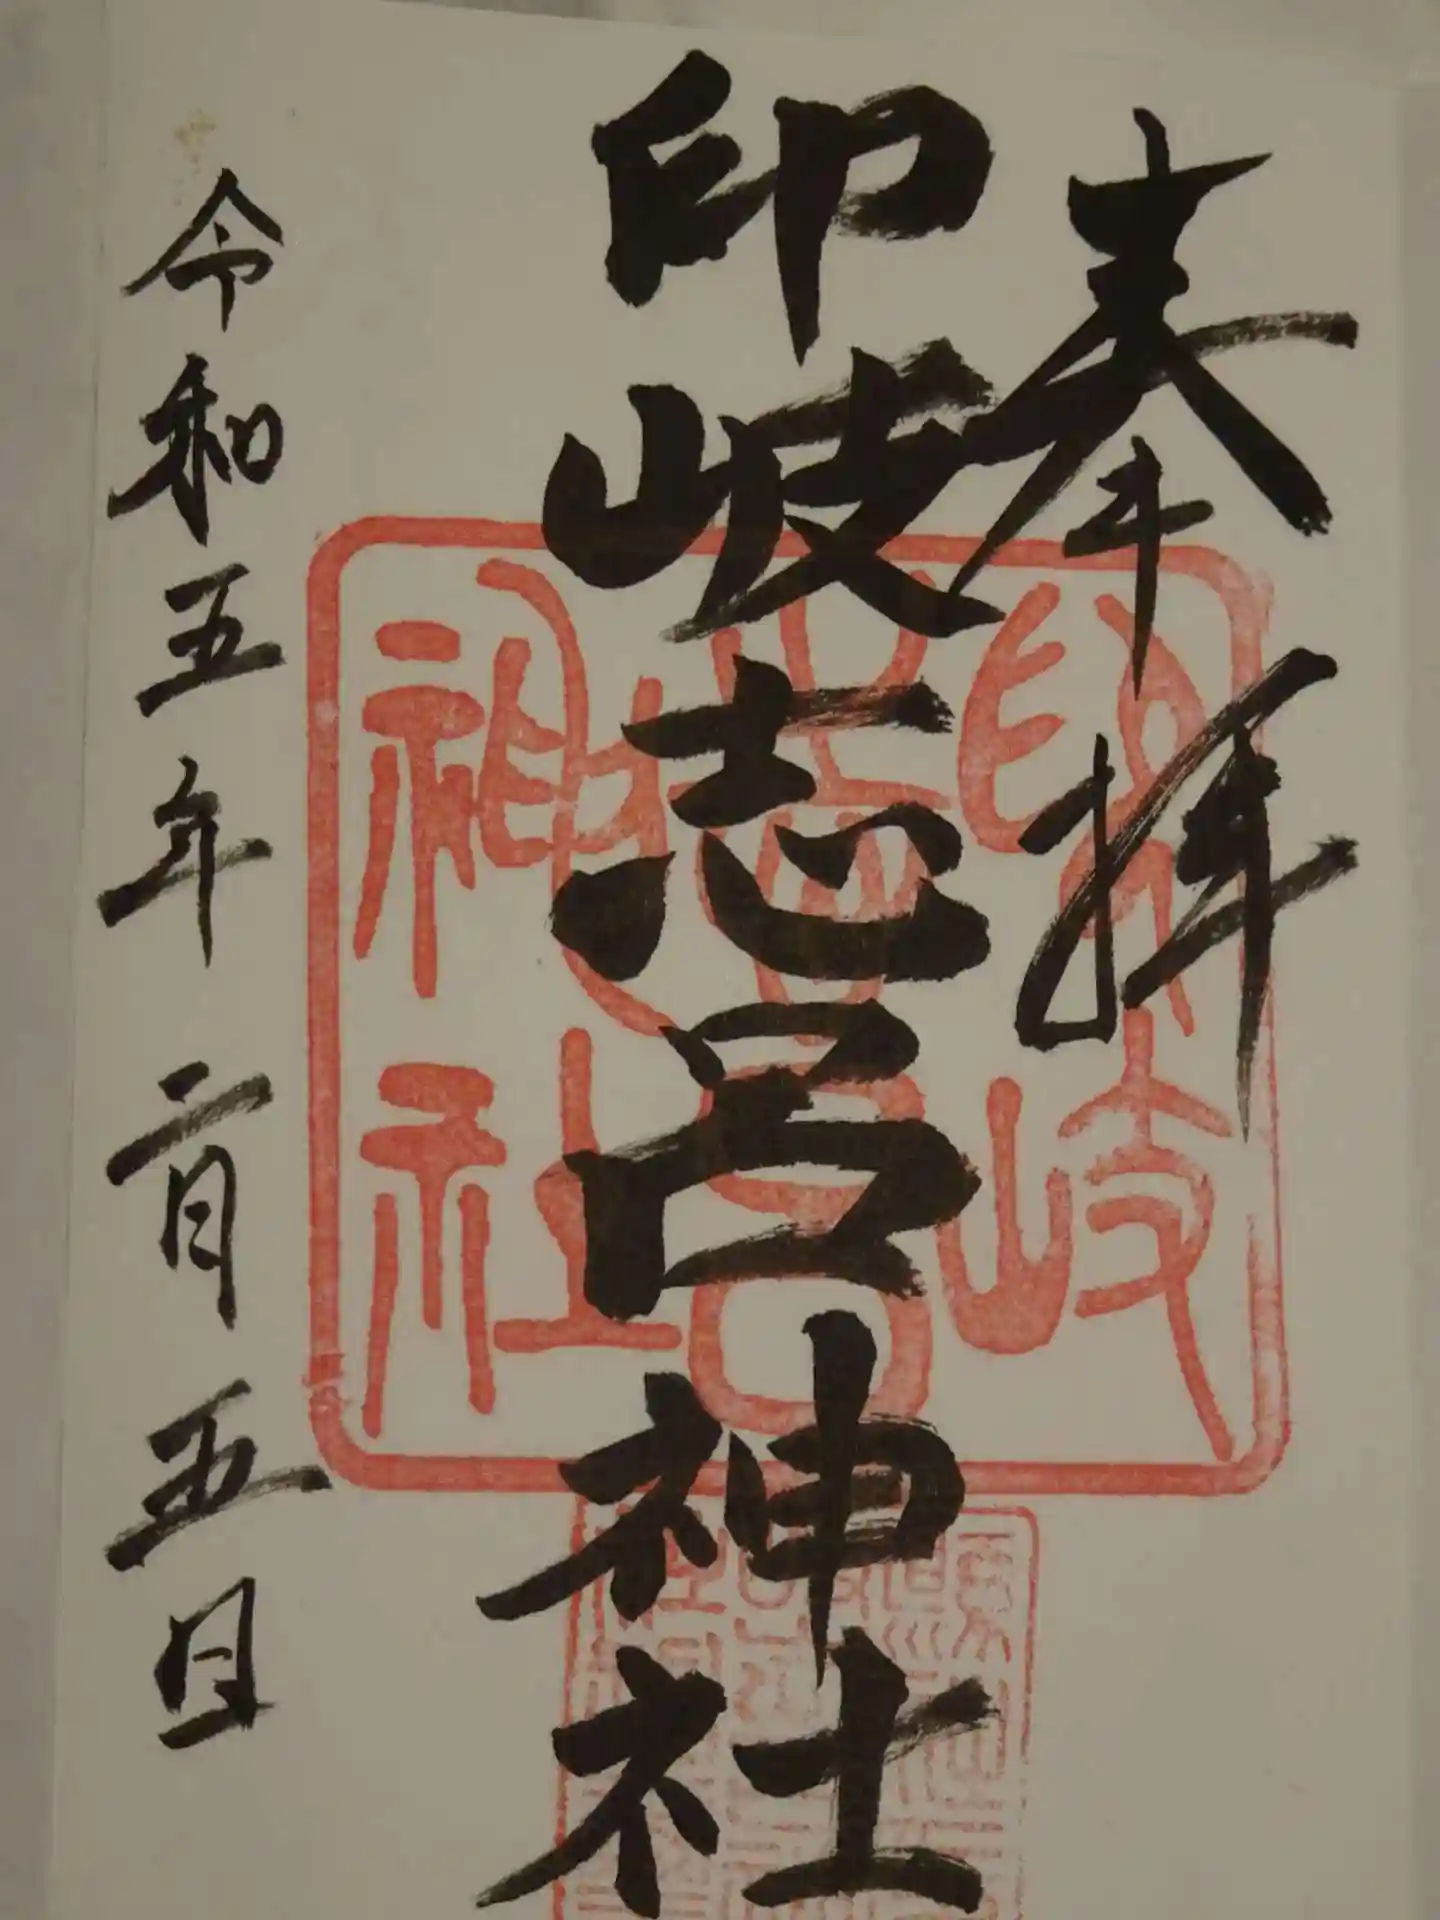 奉拝
印岐志呂神社
令和五年二月五日
印岐
志呂
神社